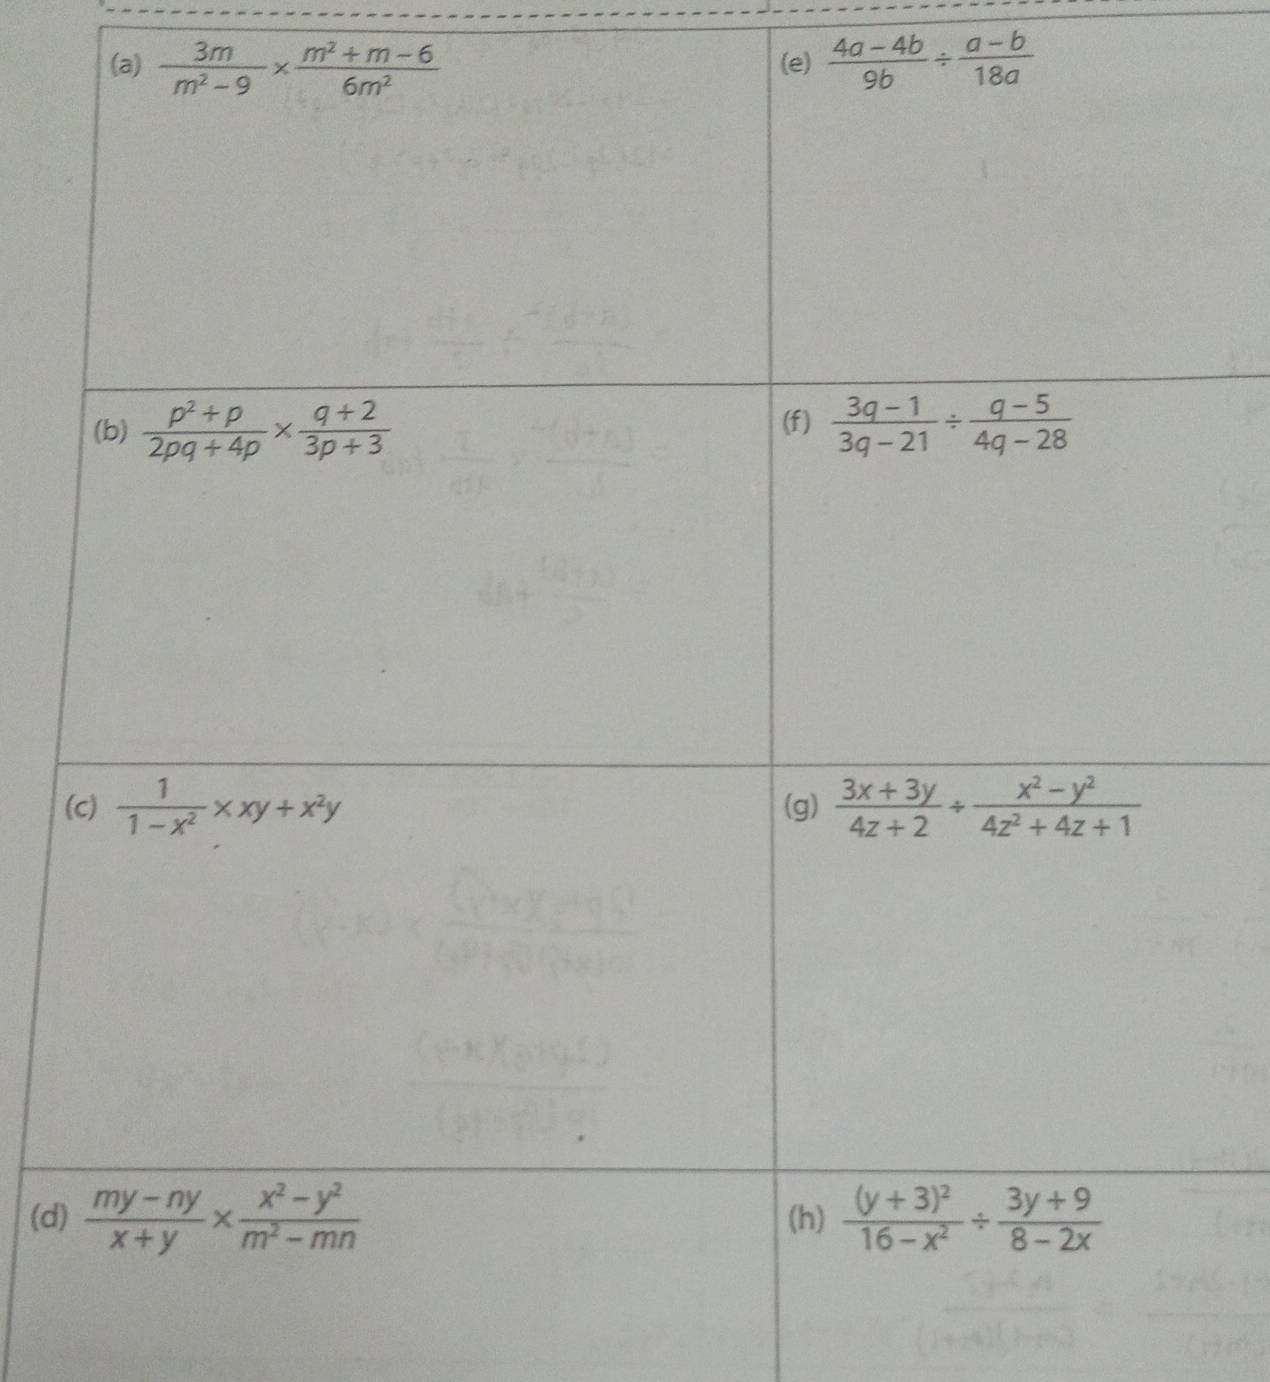 (a) \frac{3m}{m² − 9} × \frac{m² + m − 6}{6m²}
(e) \frac{4a − 4b}{9b} ÷ \frac{a − b}{18a}
(b) \frac{p² + p}{2pq + 4p} × \frac{q + 2}{3p + 3}
(f) \frac{3q − 1}{3q − 21} ÷ \frac{q − 5}{4q − 28}
(c) \frac{1}{1 − x²} × xy + x²y
(g) \frac{3x + 3y}{4z + 2} ÷ \frac{x² − y²}{4z² + 4z + 1}
(d) \frac{my − ny}{x + y} × \frac{x² − y²}{m² − mn}
(h) \frac{(y + 3)²}{16 − x²} ÷ \frac{3y + 9}{8 − 2x}